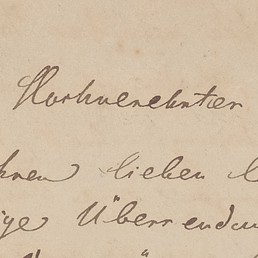 Hochverehrter
hren lieben B
ige Übersendun